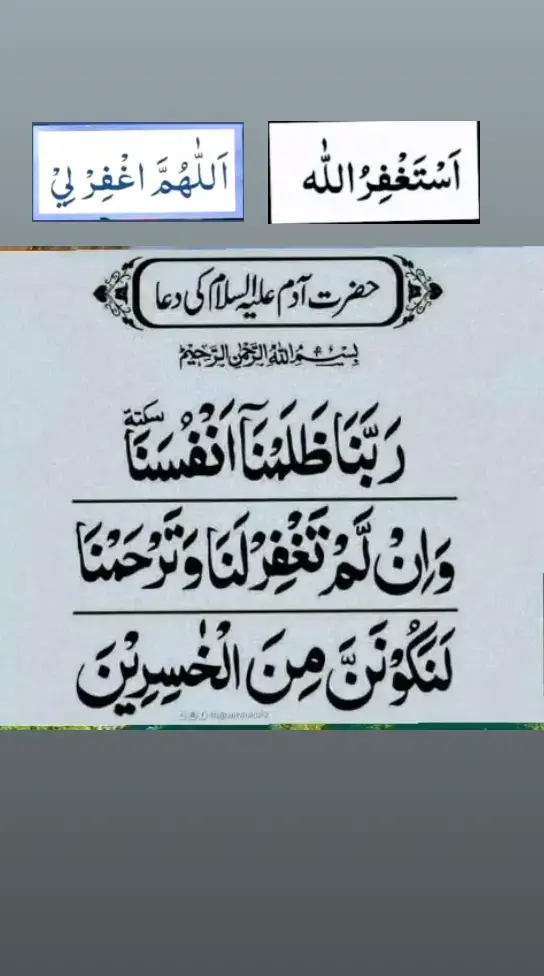 اَسْتَغْفِرُ اللّٰه
اَللّٰهُمَّ اغْفِرْ لِيْ
حضرت آدم علیہ السلام کی دعا
بِسْمِ اللّٰهِ الرَّحْمٰنِ الرَّحِيْمِ
رَبَّنَا ظَلَمْنَاۤ اَنْفُسَنَا سكتة
وَاِنْ لَّمْ تَغْفِرْ لَنَا وَتَرْحَمْنَا
لَنَكُوْنَنَّ مِنَ الْخٰسِرِيْنَ